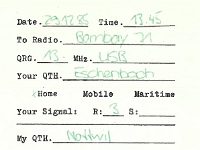 Date. 29.12.85 Time. 13.45
To Radio. Bombay 21
QRG. 13. MHz. USB
Your QTH. Eschenbach
Home Mobile Maritime
Your Signal: R: 3 S:
My QTH. Nottwil